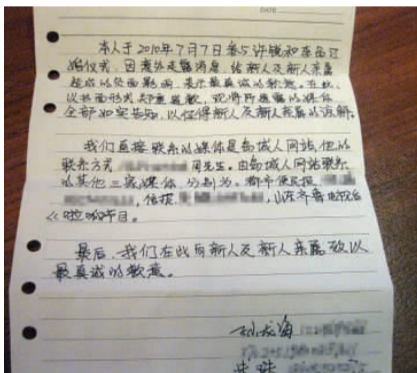 DATE
本人于2010年7月7日参与许锐和李函江
婚仪式，因意外走露消息，给新人及新人亲属
造成的负面影响，表示最真诚的歉意。在此，
以书面形式郑重道歉，现将所透露的媒体
全部如实告知，以征得新人及新人亲属的谅解。
我们直接联系的媒体是岛城人网站，他的
联系方式 周先生。由岛城人网站联系
的其他三家媒体，分别为：都市便民报
，信报 ，山东齐鲁电视台
《啦呱》节目。
最后，我们在此向新人及新人亲属致以
最真诚的歉意。
孙成海